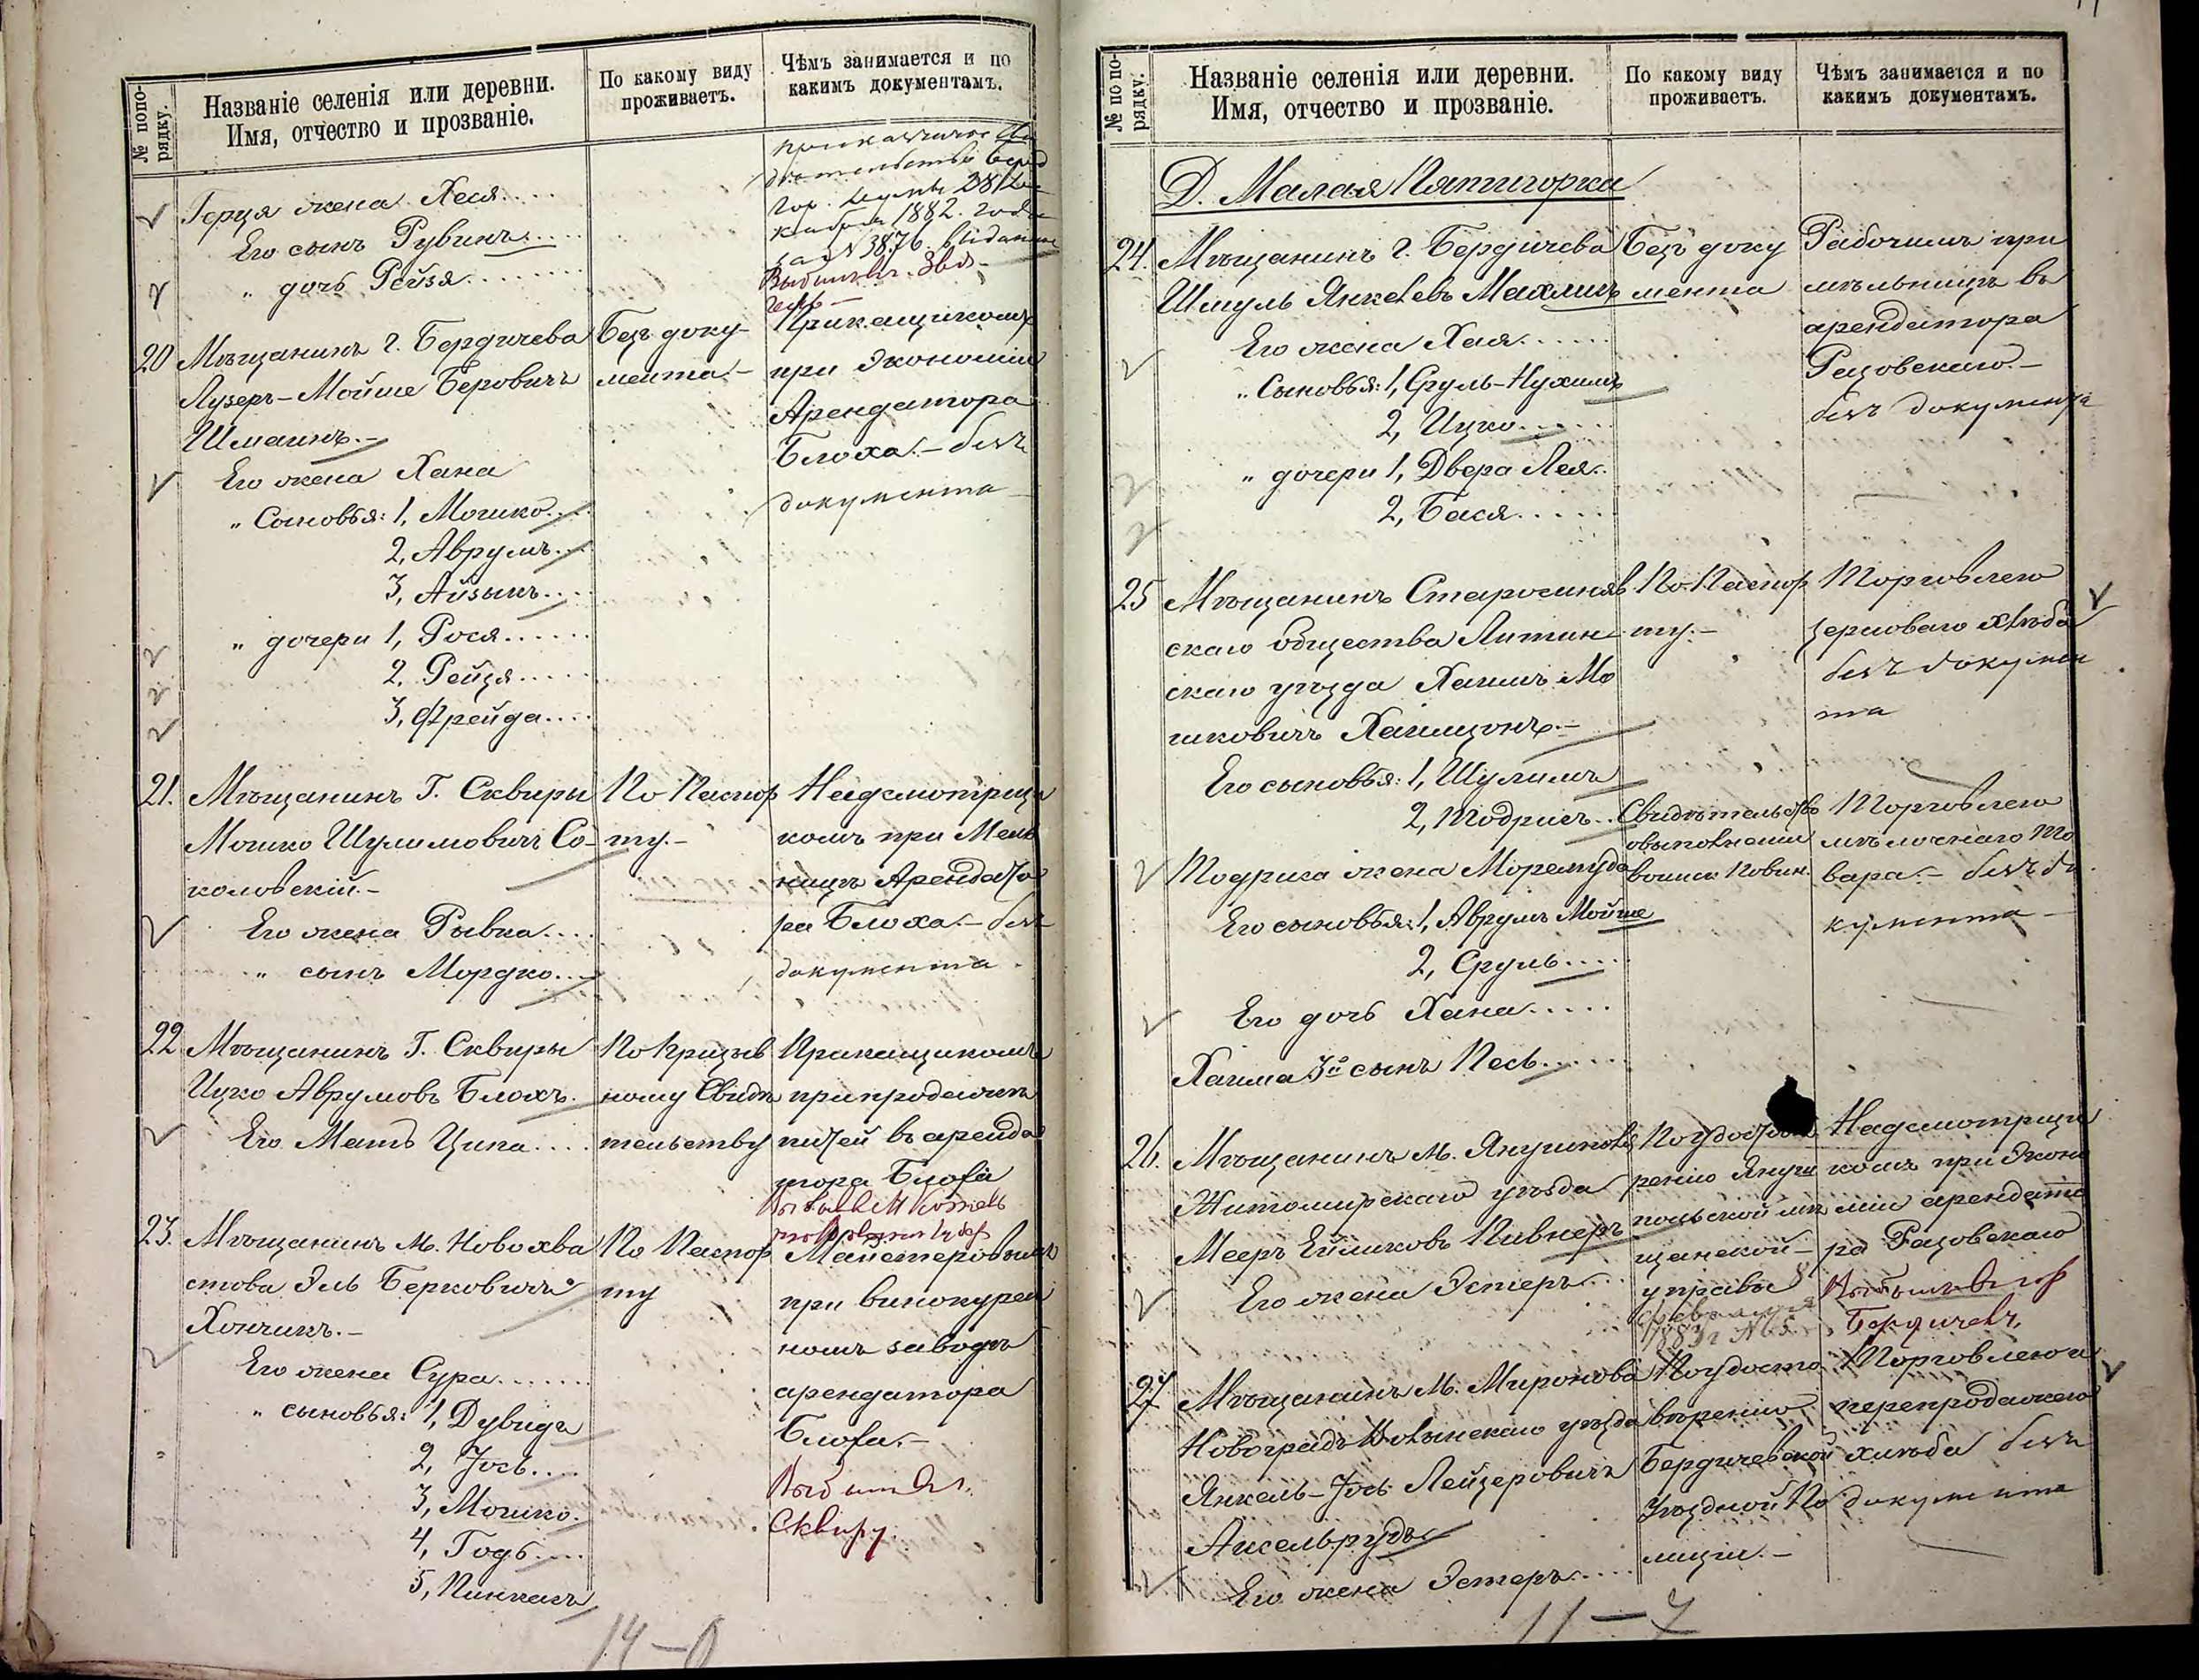 № по по-
рядку.
Названіе селенія или деревни.
Имя, отчество и прозваніе.
По какому виду
проживаетъ.
Чѣмъ занимается и по
какимъ документамъ.
Герця жена Хася.....
Его сынъ Рувинъ.....
" дочь Рейзя.......
2812 де
кабря 1882. года
за № 3876.
20 Мѣщанинъ г. Бердичева
Лузеръ-Мойше Беровичъ
Шмаинъ.-
Его жена Хана
" Сыновья: 1, Мошко....
2, Аврумъ....
3, Айзыкъ....
" дочери 1, Рося......
2, Рейзя.....
3, Фрейда....
Безъ доку-
мента.-
Прикащикомъ
при Экономіи
Арендатора
Блоха.- безъ
документа
21. Мѣщанинъ Г. Сквиры
Мошко Шулимовичъ Со-
коловскій.-
Его жена Рывка....
" сынъ Мордко....
По Паспор
ту.-
Надсмотрщи
комъ при Мель
ницѣ Арендато
ра Блоха.- безъ
документа.
22 Мѣщанинъ Г. Сквиры
Ицко Аврумовъ Блохъ.
Его Мать Ципа....
По Призыв
ному Свидѣ
тельству
Пракащикомъ
при продажѣ
питей въ аренда
тора Блоха
23. Мѣщанинъ М. Новохва
стова Эль Берковичъ
Хончикъ.-
Его жена Сура.......
" сыновья: 1, Дувидъ
2, Іось....
3, Мошко.
4, Годь....
5, Пинкасъ
По Паспор
ту
Майстеровымъ
при винокурен
номъ заводѣ
арендатора
Блоха.-
Выбылъ въ г.
Сквиру.
14-0
№ по по-
рядку.
Названіе селенія или деревни.
Имя, отчество и прозваніе.
По какому виду
проживаетъ.
Чѣмъ занимается и по
какимъ документамъ.
Д. Малая Пятигорка
24. Мѣщанинъ г. Бердичева
Шмуль Янкелевъ Махлинъ
Его жена Хая......
" Сыновья: 1, Сруль-Нухимъ
2, Ицко......
" дочери 1, Двера Лея..
2, Бася......
Безъ доку
мента
Рабочимъ при
мѣльницѣ въ
арендатора
Рацовскаго.-
безъ документа
25 Мѣщанинъ Старосиняв
скаго общества Литин
скаго уѣзда Хаимъ Мо
шковичъ Хаимзонъ.-
Его сыновья: 1, Шулимъ
2, Тодрисъ..
Тодриса жена
Его сыновья: 1, Аврумъ Мойше
2, Сруль.....
Его дочь Хана.....
Хаима 3й сынъ Песь......
По Паспор
ту.-
Свидѣтельство
о выполненіи
воинск. Повин.
Торговлею
зерноваго хлѣба
безъ докумен
та
Торговлею
мѣлочнаго то
вара.- безъ до
кумента
26. Мѣщанинъ М. Янушполя
Житомирскаго уѣзда
Мееръ Пивнеръ
Его жена Эстеръ...
По удостовѣ
ренію Януш
польской мѣ
щанской
управы 8
февраля
№ 65
Надсмотрщи
комъ при Эконо
міи арендато
ра Рацовскаго
Выбылъ въ гор
Бердичевъ.
27 Мѣщанинъ М. Миронова
Новоградъ Волынскаго уѣзда
Янкель-Іось Лейзеровичъ
Аксельрудъ
Его жена Эстеръ.....
По удосто
вѣренію
Бердичевской
Уѣздной По
лиціи.-
Торговлею и
перепродажею
хлѣба безъ
документа
11-7